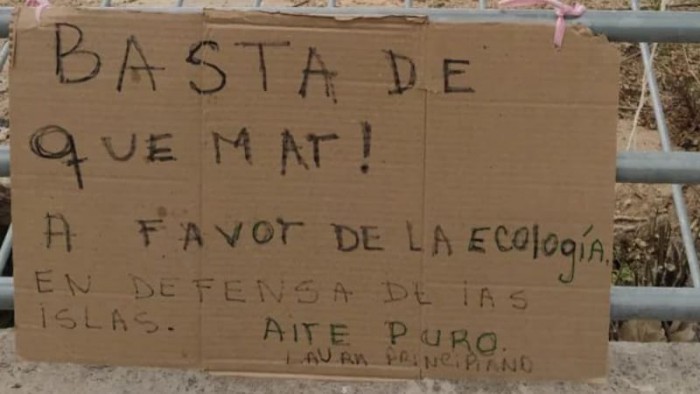 BASTA DE
QUEMAR!
A FAVOR DE LA ECOLOGÍA,
EN DEFENSA DE LAS
ISLAS.
AIRE PURO.
LAURA PRINCIPIANO